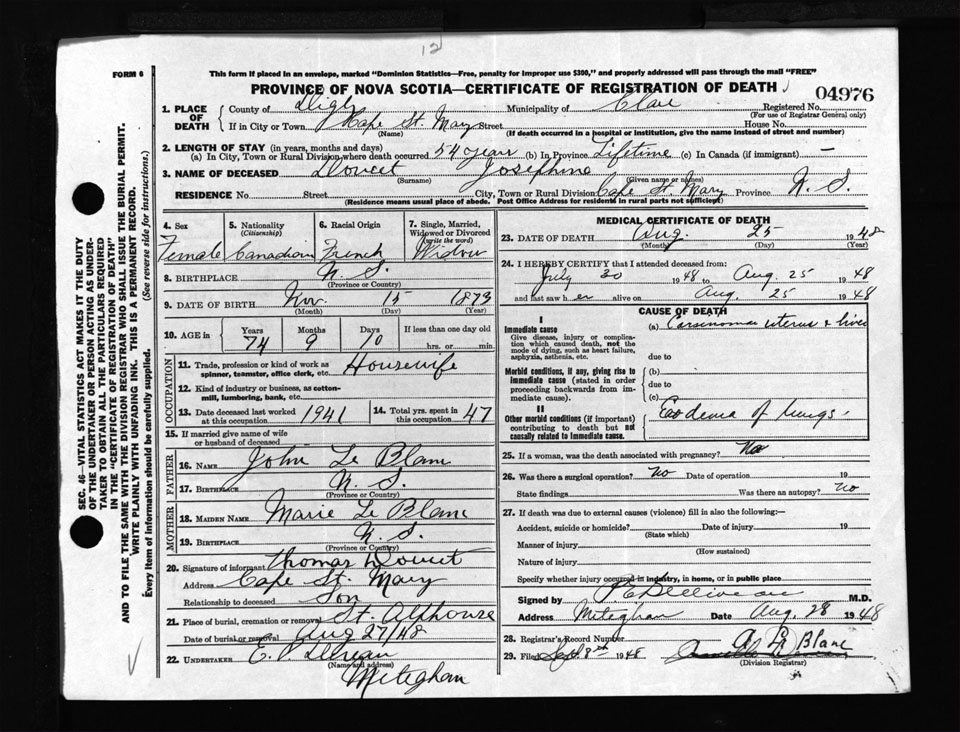 12
FORM 6
This form if placed in an envelope, marked "Dominion Statistics—Free, penalty for improper use $300," and properly addressed will pass through the mail "FREE"
PROVINCE OF NOVA SCOTIA—CERTIFICATE OF REGISTRATION OF DEATH
04976
1. PLACE OF DEATH
County of Digby Municipality of Clare Registered No.
(For use of Registrar General only)
If in City or Town Cape St. Mary Street House No.
(Name) (If death occurred in a hospital or institution, give the name instead of street and number)
2. LENGTH OF STAY (in years, months and days)
(a) In City, Town or Rural Division where death occurred 54 years (b) In Province Lifetime (c) In Canada (if immigrant) —
3. NAME OF DECEASED Doucet Josephine
(Surname) (Given name or names)
RESIDENCE No. Street City, Town or Rural Division Cape St. Mary Province N. S.
(Residence means usual place of abode. Post Office Address for residents in rural parts not sufficient)
4. Sex
Female
5. Nationality
(Citizenship)
Canadian
6. Racial Origin
French
7. Single, Married, Widowed or Divorced
(write the word)
Widow
8. BIRTHPLACE N. S.
(Province or Country)
9. DATE OF BIRTH Nov. 15 1873
(Month) (Day) (Year)
10. AGE in Years Months Days If less than one day old
74 9 10 hrs. or min.
OCCUPATION
11. Trade, profession or kind of work as spinner, teamster, office clerk, etc. Housewife
12. Kind of industry or business, as cotton-mill, lumbering, bank, etc.
13. Date deceased last worked at this occupation 1941
14. Total yrs. spent in this occupation 47
15. If married give name of wife or husband of deceased
FATHER
16. NAME John Le Blanc
17. BIRTHPLACE N. S.
(Province or Country)
MOTHER
18. MAIDEN NAME Marie Le Blanc
19. BIRTHPLACE N. S.
(Province or Country)
20. Signature of informant Thomas Doucet
Address Cape St. Mary
Relationship to deceased Son
21. Place of burial, cremation or removal St. Alphonse
Date of burial or removal Aug 27/48
22. UNDERTAKER E. P.
(Name and address)
Meteghan
MEDICAL CERTIFICATE OF DEATH
23. DATE OF DEATH Aug. 25 1948
(Month) (Day) (Year)
24. I HEREBY CERTIFY that I attended deceased from:
July 30 1948 to Aug. 25 1948
and last saw her alive on Aug. 25 1948
CAUSE OF DEATH
I
Immediate cause
Give disease, injury or complication which caused death, not the mode of dying, such as heart failure, asphyxia, asthenia, etc.
(a) Carsinoma uterus & liver
due to
Morbid conditions, if any, giving rise to immediate cause (stated in order proceeding backwards from immediate cause).
(b)
due to
(c)
II
Other morbid conditions (if important) contributing to death but not causally related to immediate cause.
of lungs.
25. If a woman, was the death associated with pregnancy? No
26. Was there a surgical operation? No Date of operation 19
State findings Was there an autopsy? No
27. If death was due to external causes (violence) fill in also the following:—
Accident, suicide or homicide? Date of injury 19
(State which)
Manner of injury
(How sustained)
Nature of injury
Specify whether injury occurred in industry, in home, or in public place
Signed by M.D.
Address Meteghan Date Aug 28 1948
28. Registrar's Record Number
29. Filed Sept 8th 1948 Blanc
(Division Registrar)
SEC. 46—VITAL STATISTICS ACT MAKES IT THE DUTY OF THE UNDERTAKER OR PERSON ACTING AS UNDERTAKER TO OBTAIN ALL THE PARTICULARS REQUIRED IN THE "CERTIFICATE OF REGISTRATION OF DEATH" AND TO FILE THE SAME WITH THE DIVISION REGISTRAR WHO SHALL ISSUE THE BURIAL PERMIT.
WRITE PLAINLY WITH UNFADING INK. THIS IS A PERMANENT RECORD.
Every item of information should be carefully supplied. (See reverse side for instructions.)